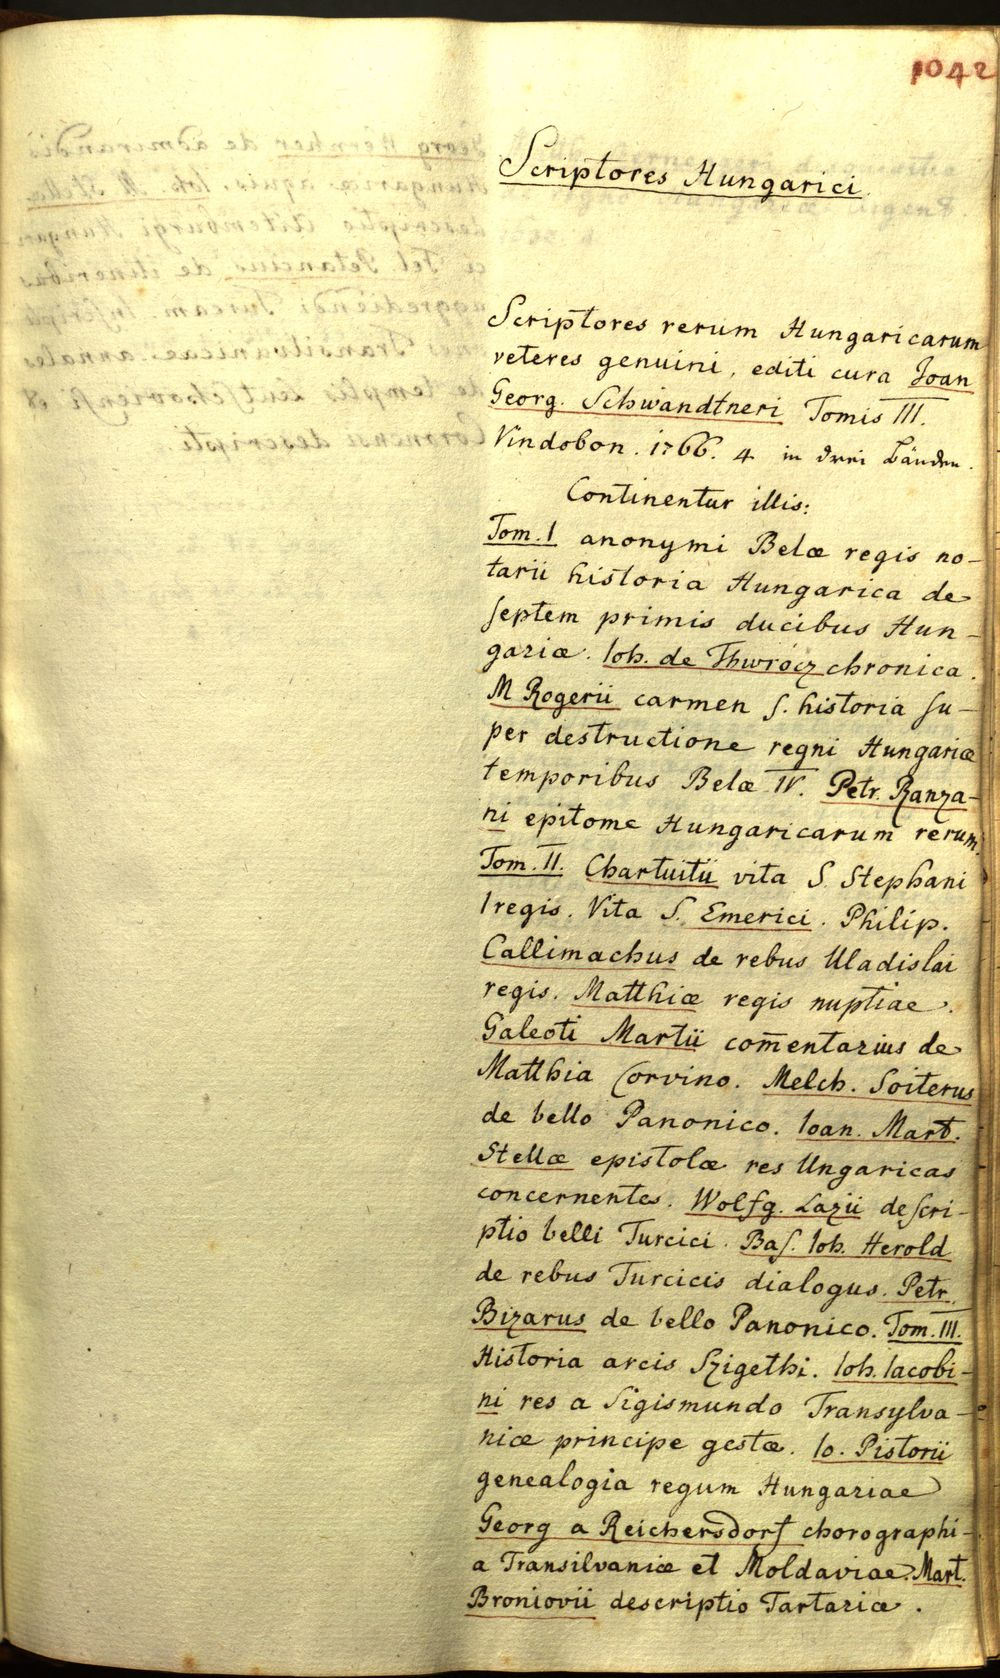 1042
Scriptores Hungarici.
Scriptores rerum Hungaricarum
veteres genuini, editi cura Joan
Georg. Schwandtneri Tomis III.
Vindobon. 1766. 4 in drei Bänden.
Continentur illis:
Tom. I anonymi Belæ regis no-
tarii historia Hungarica de
septem primis ducibus Hun-
gariæ. Ioh. de Thwrócz chronica.
M Rogerii carmen s. historia su-
per destructione regni Hungariæ
temporibus Belæ IV. Petr. Ranza-
ni epitome Hungaricarum rerum.
Tom. II. Chartuitii vita S. Stephani
I regis. Vita S. Emerici. Philip.
Callimachus de rebus Uladislai
regis. Matthiæ regis nuptiae.
Galeoti Martii com̄entarius de
Matthia Corvino. Melch. Soiterus
de bello Panonico. Ioan. Mart.
Stellæ epistolæ res Ungaricas
concernentes. Wolfg. Lazii descri-
ptio belli Turcici. Bas. Ioh. Herold
de rebus Turcicis dialogus. Petr.
Bizarus de bello Panonico. Tom. III.
Historia arcis Szigethi. Ioh. Iacobi-
ni res a Sigismundo Transylva-
niæ principe gestæ. Io. Pistorii
genealogia regum Hungariae
Georg a Reichersdorf chorographi-
a Transilvaniæ et Moldaviae. Mart.
Broniovii descriptio Tartariæ.